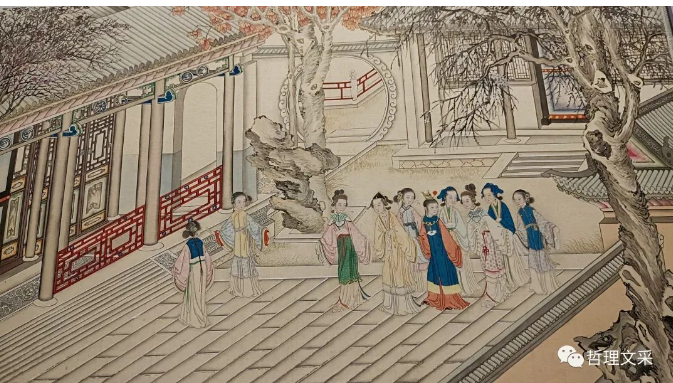 哲理文采